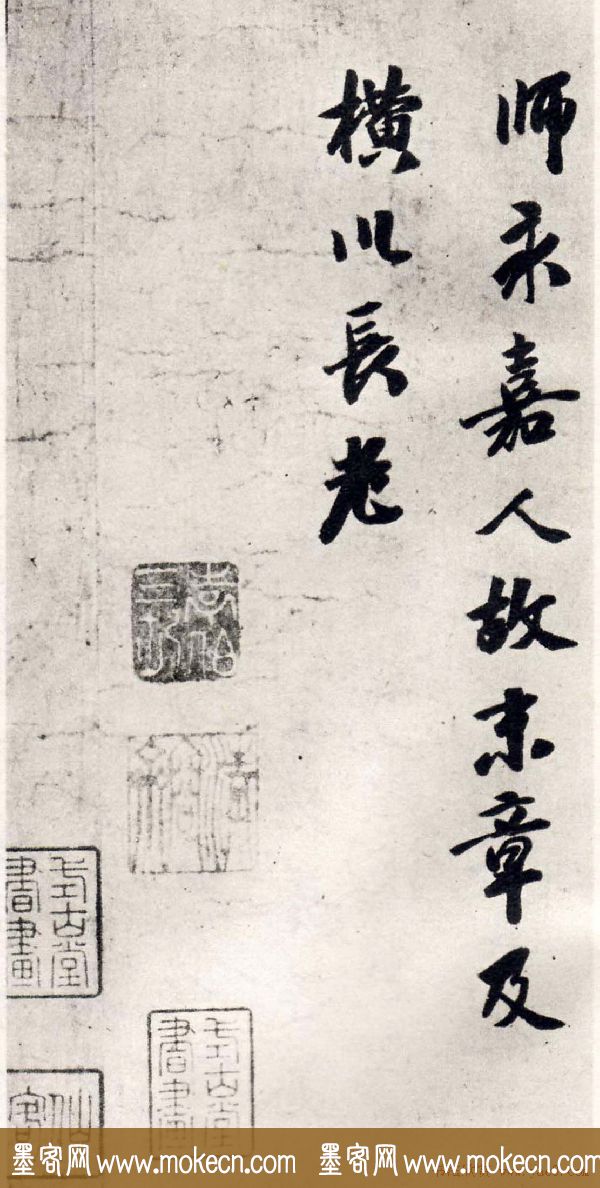 师永嘉人故末章及
横川長老
式古堂
書畫
式古堂
書畫
墨客网 www.mokecn.com 墨客网 www.mokecn.com